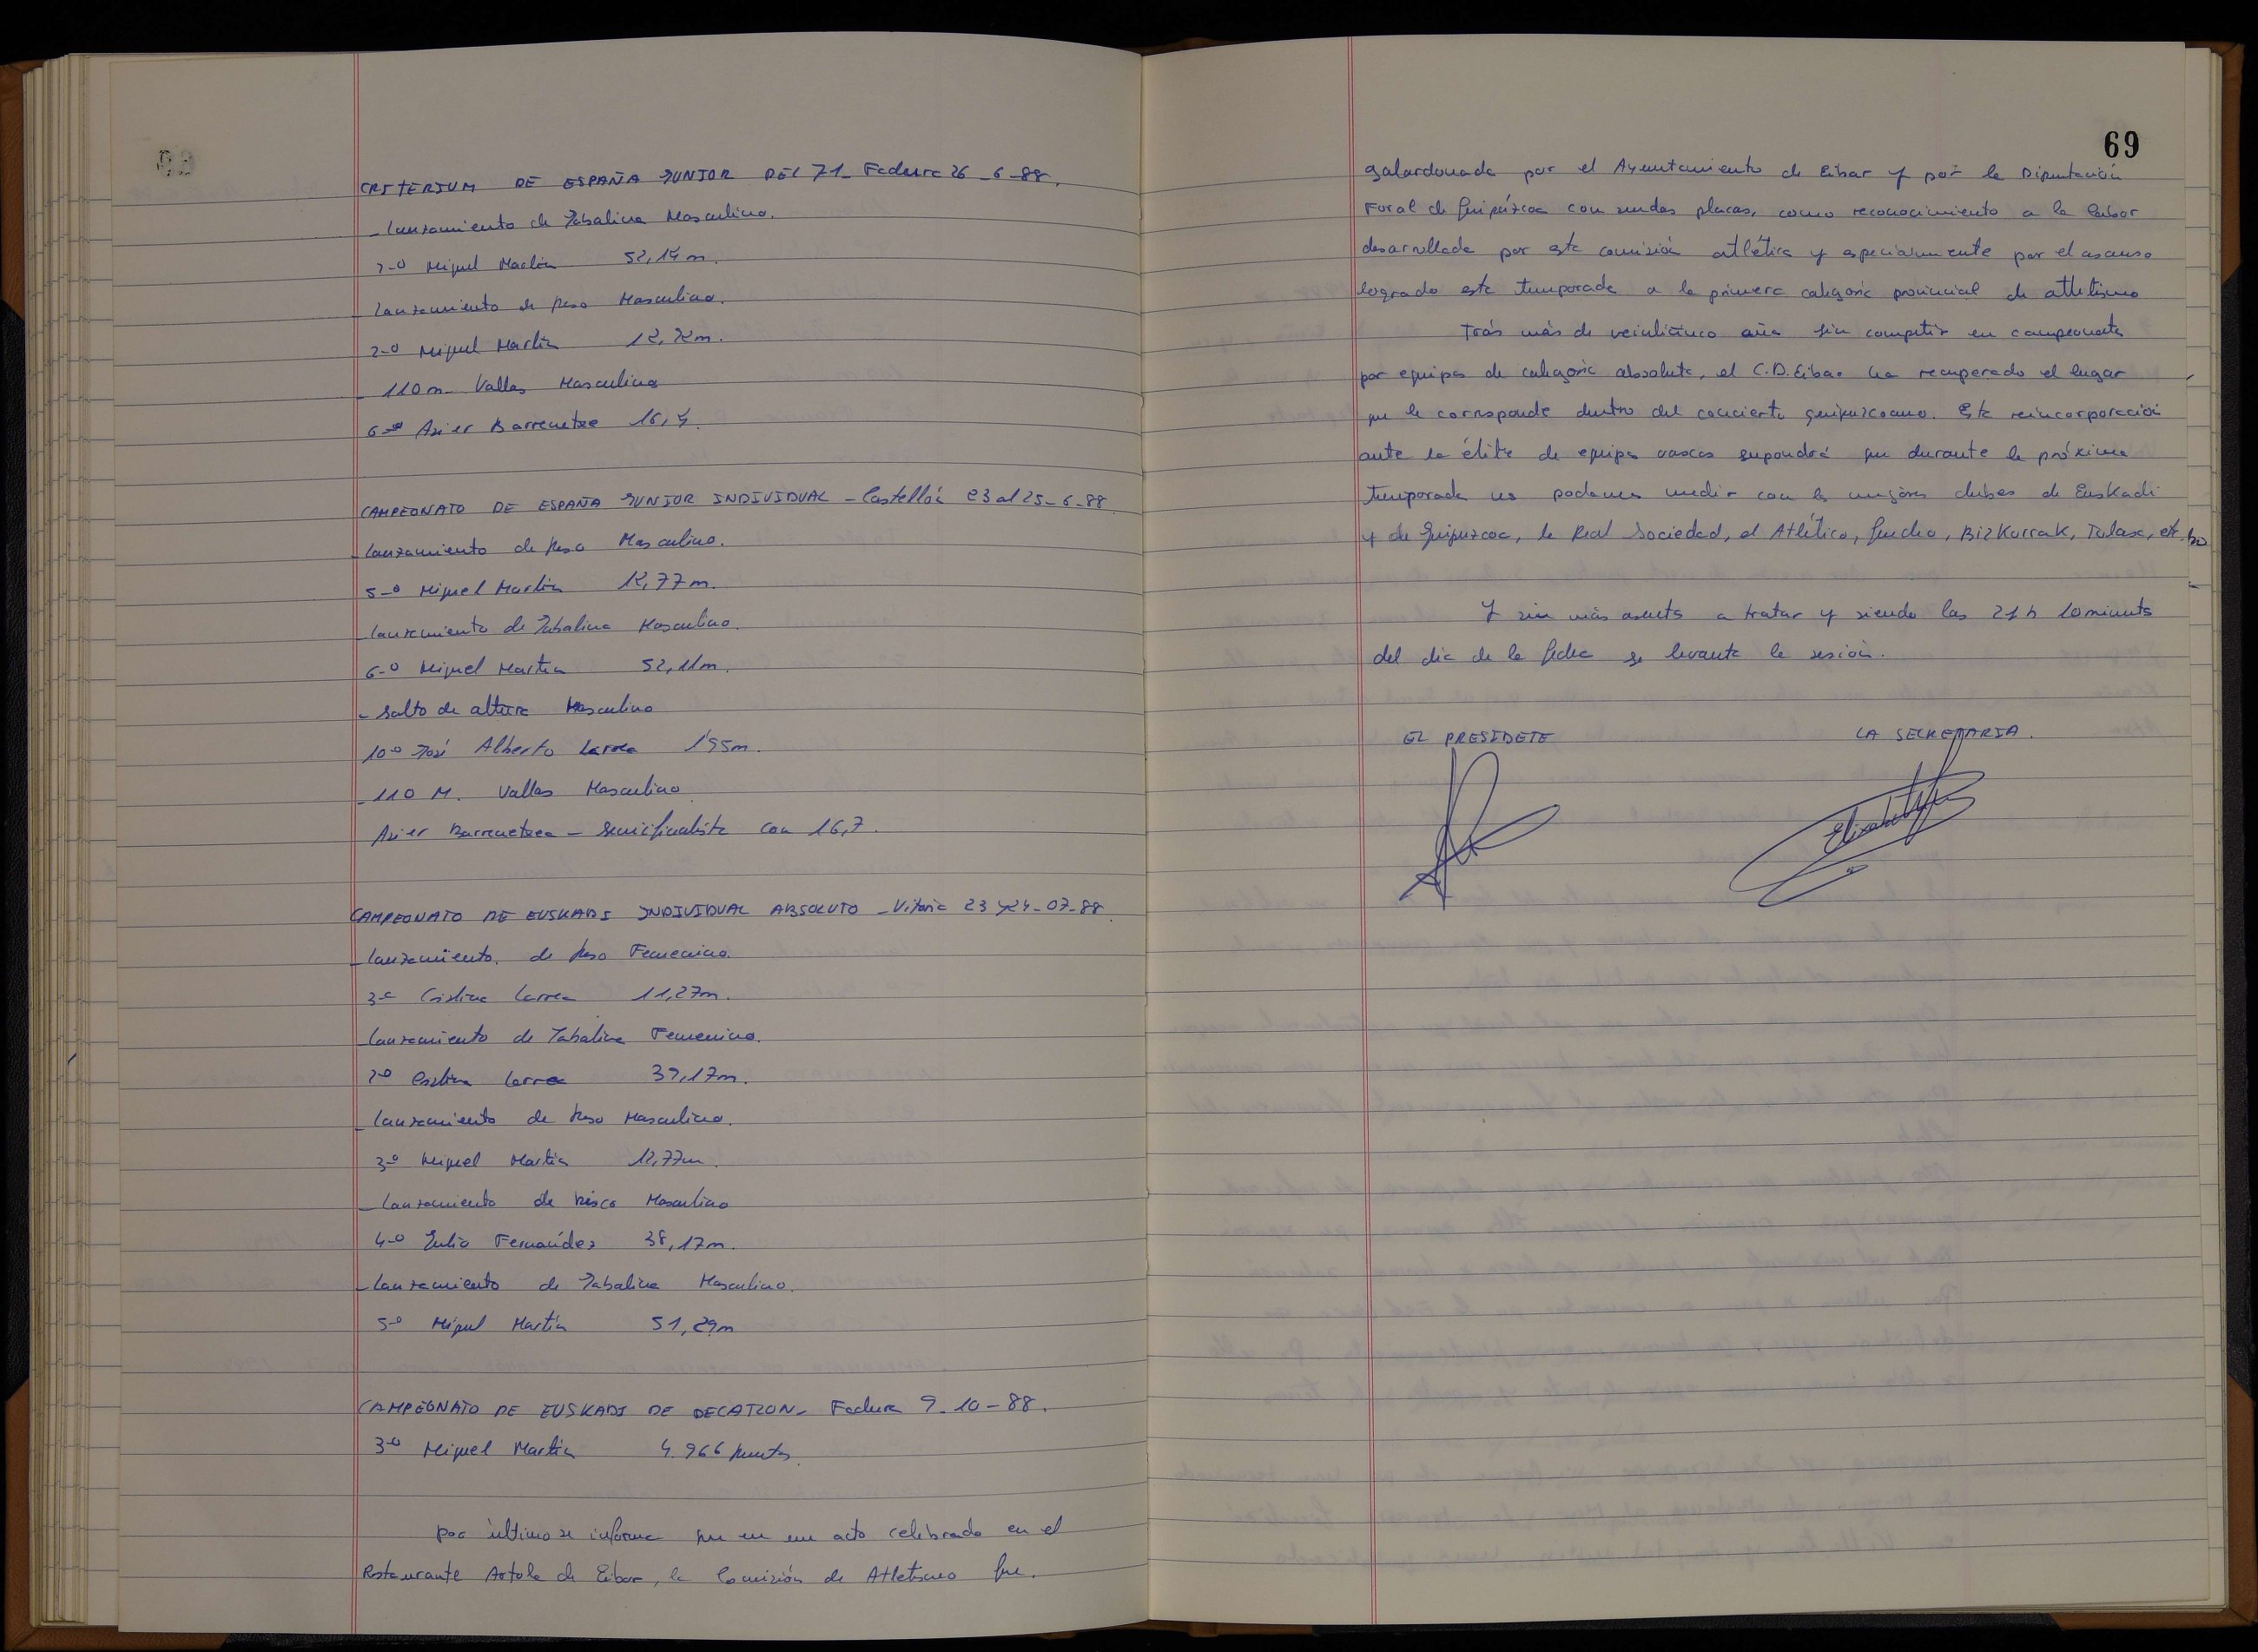 CRITERIUM DE ESPAÑA JUNIOR DEL 71_ Fadura 26_6_88.
_ Lanzamiento de Jabalina Masculino.
2_o Miguel Martín 52,14 m.
_ Lanzamiento de peso Masculino.
2_o Miguel Martín 12,72m.
_ 110 m. Vallas Masculino
6_o Asier Barrenetxea 16,4.
CAMPEONATO DE ESPAÑA JUNIOR INDIVIDUAL _ Castellón 23 al 25_6_88.
_ Lanzamiento de peso Masculino.
5_o Miguel Martín 12,77m.
_ Lanzamiento de Jabalina Masculino.
6_o Miguel Martín 52,11m.
_ Salto de altura Masculino
10_o José Alberto Larrea 1'95m.
_ 110 M. Vallas Masculino.
Asier Barrenetxea _ Semifinalista con 16,7.
CAMPEONATO DE EUSKADI INDIVIDUAL ABSOLUTO _ Vitoria 23 y 24_07_88.
_ Lanzamiento de peso Femenino.
3_a Cristina Larrea 11,27m.
_ Lanzamiento de Jabalina Femenino.
2_o Cristina Larrea 39,17m.
_ Lanzamiento de Peso Masculino.
3_o Miguel Martín 12,77m.
_ Lanzamiento de Disco Masculino
4_o Julio Fernández 38,17m.
_ Lanzamiento de Jabalina Masculino.
5_o Miguel Martín 51,29m
CAMPEONATO DE EUSKADI DE DECATLON_ Fadura 9_10_88.
3_o Miguel Martín 4.966 puntos.
Por último se informa que en un acto celebrado en el
Restaurante Artola de Eibar, la Comisión de Atletismo fue.
69
galardonada por el Ayuntamiento de Eibar y por la Diputación
Foral de Guipúzcoa con sendas placas, como reconocimiento a la labor
desarrollada por esta comisión atlética y especialmente por el ascenso
logrado esta temporada a la primera categoría provincial de atletismo
Trás más de veinticinco años sin competir en campeonatos
por equipos de categoría absoluta, el C.D. Eibar ha recuperado el lugar
que le corresponde dentro del concierto guipuzcoano. Esta reincorporación
ante la élite de equipos vascos supondrá que durante la próxima
temporada nos podamos medir con los mejores clubes de Euskadi
y de Guipúzcoa, la Real Sociedad, el Atlético, Guecho, BizKarrak, Tolasa, etc.
Y sin más asuntos a tratar y siendo las 21 h 10 minutos
del día de la fecha se levanta la sesión.
EL PRESIDETE LA SECRETARIA.
Elizabeth